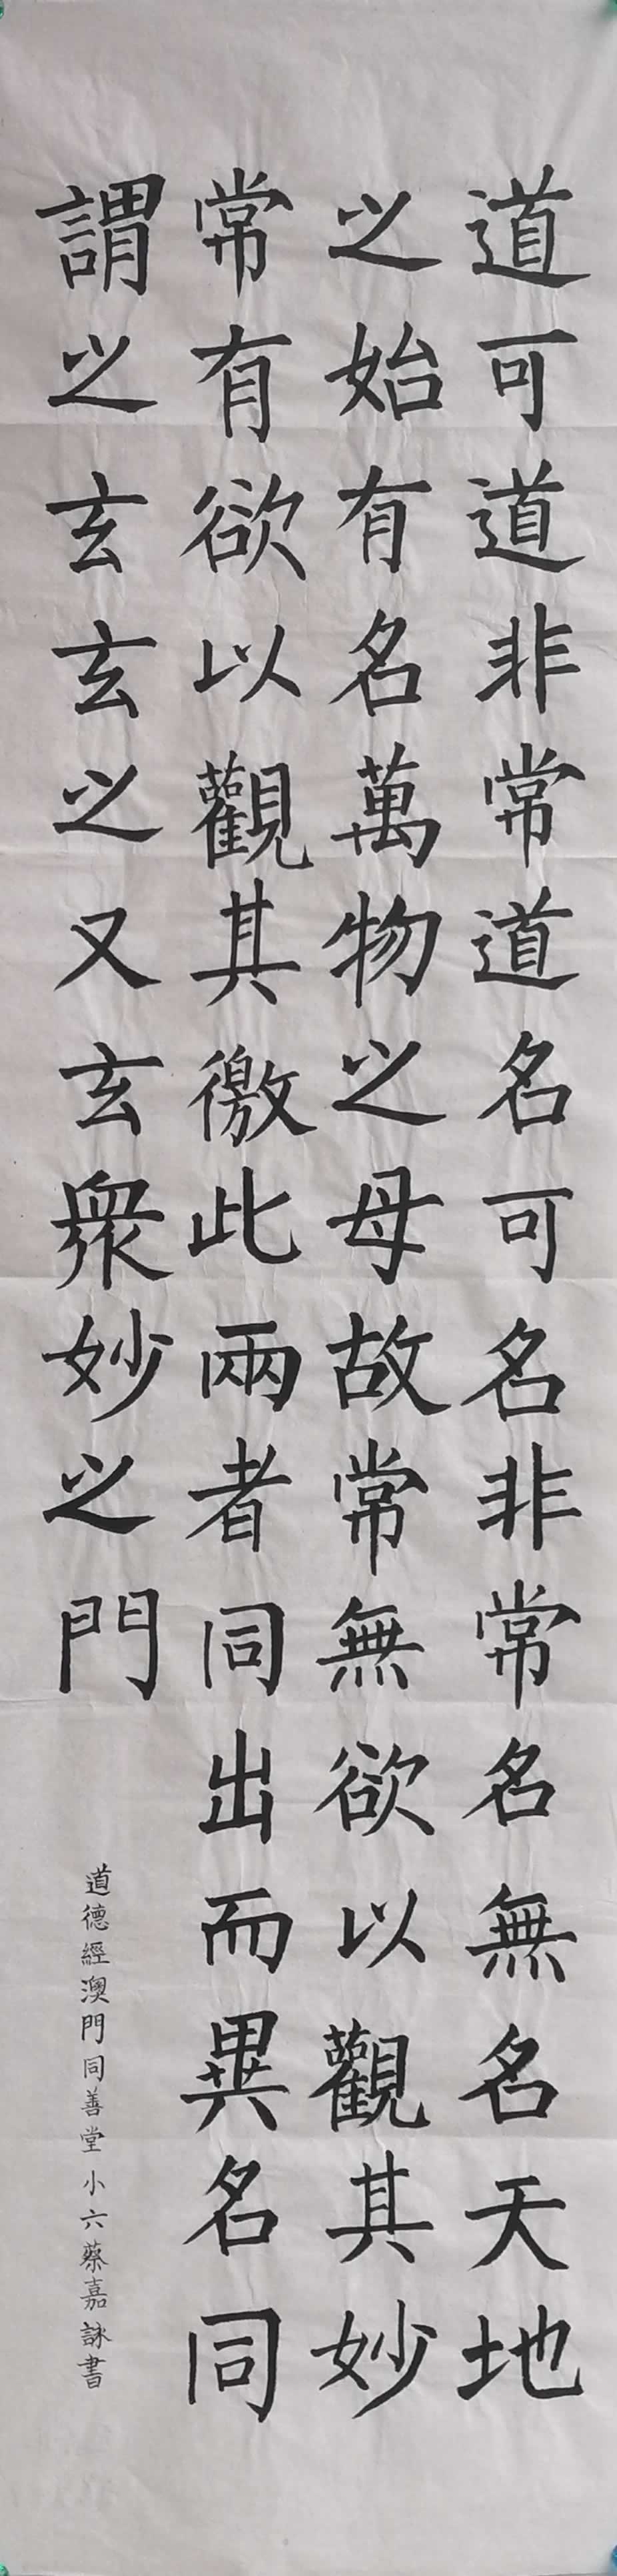 道可道非常道名可名非常名無名天地
之始有名萬物之母故常無欲以觀其妙
常有欲以觀其徼此兩者同出而異名同
謂之玄玄之又玄衆妙之門
道德經澳門同善堂小六蔡嘉詠書